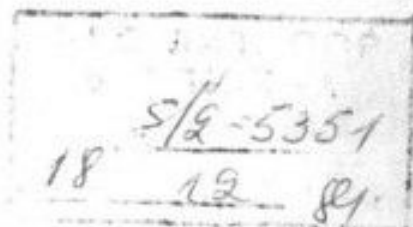 5/2-5351
18 12 84